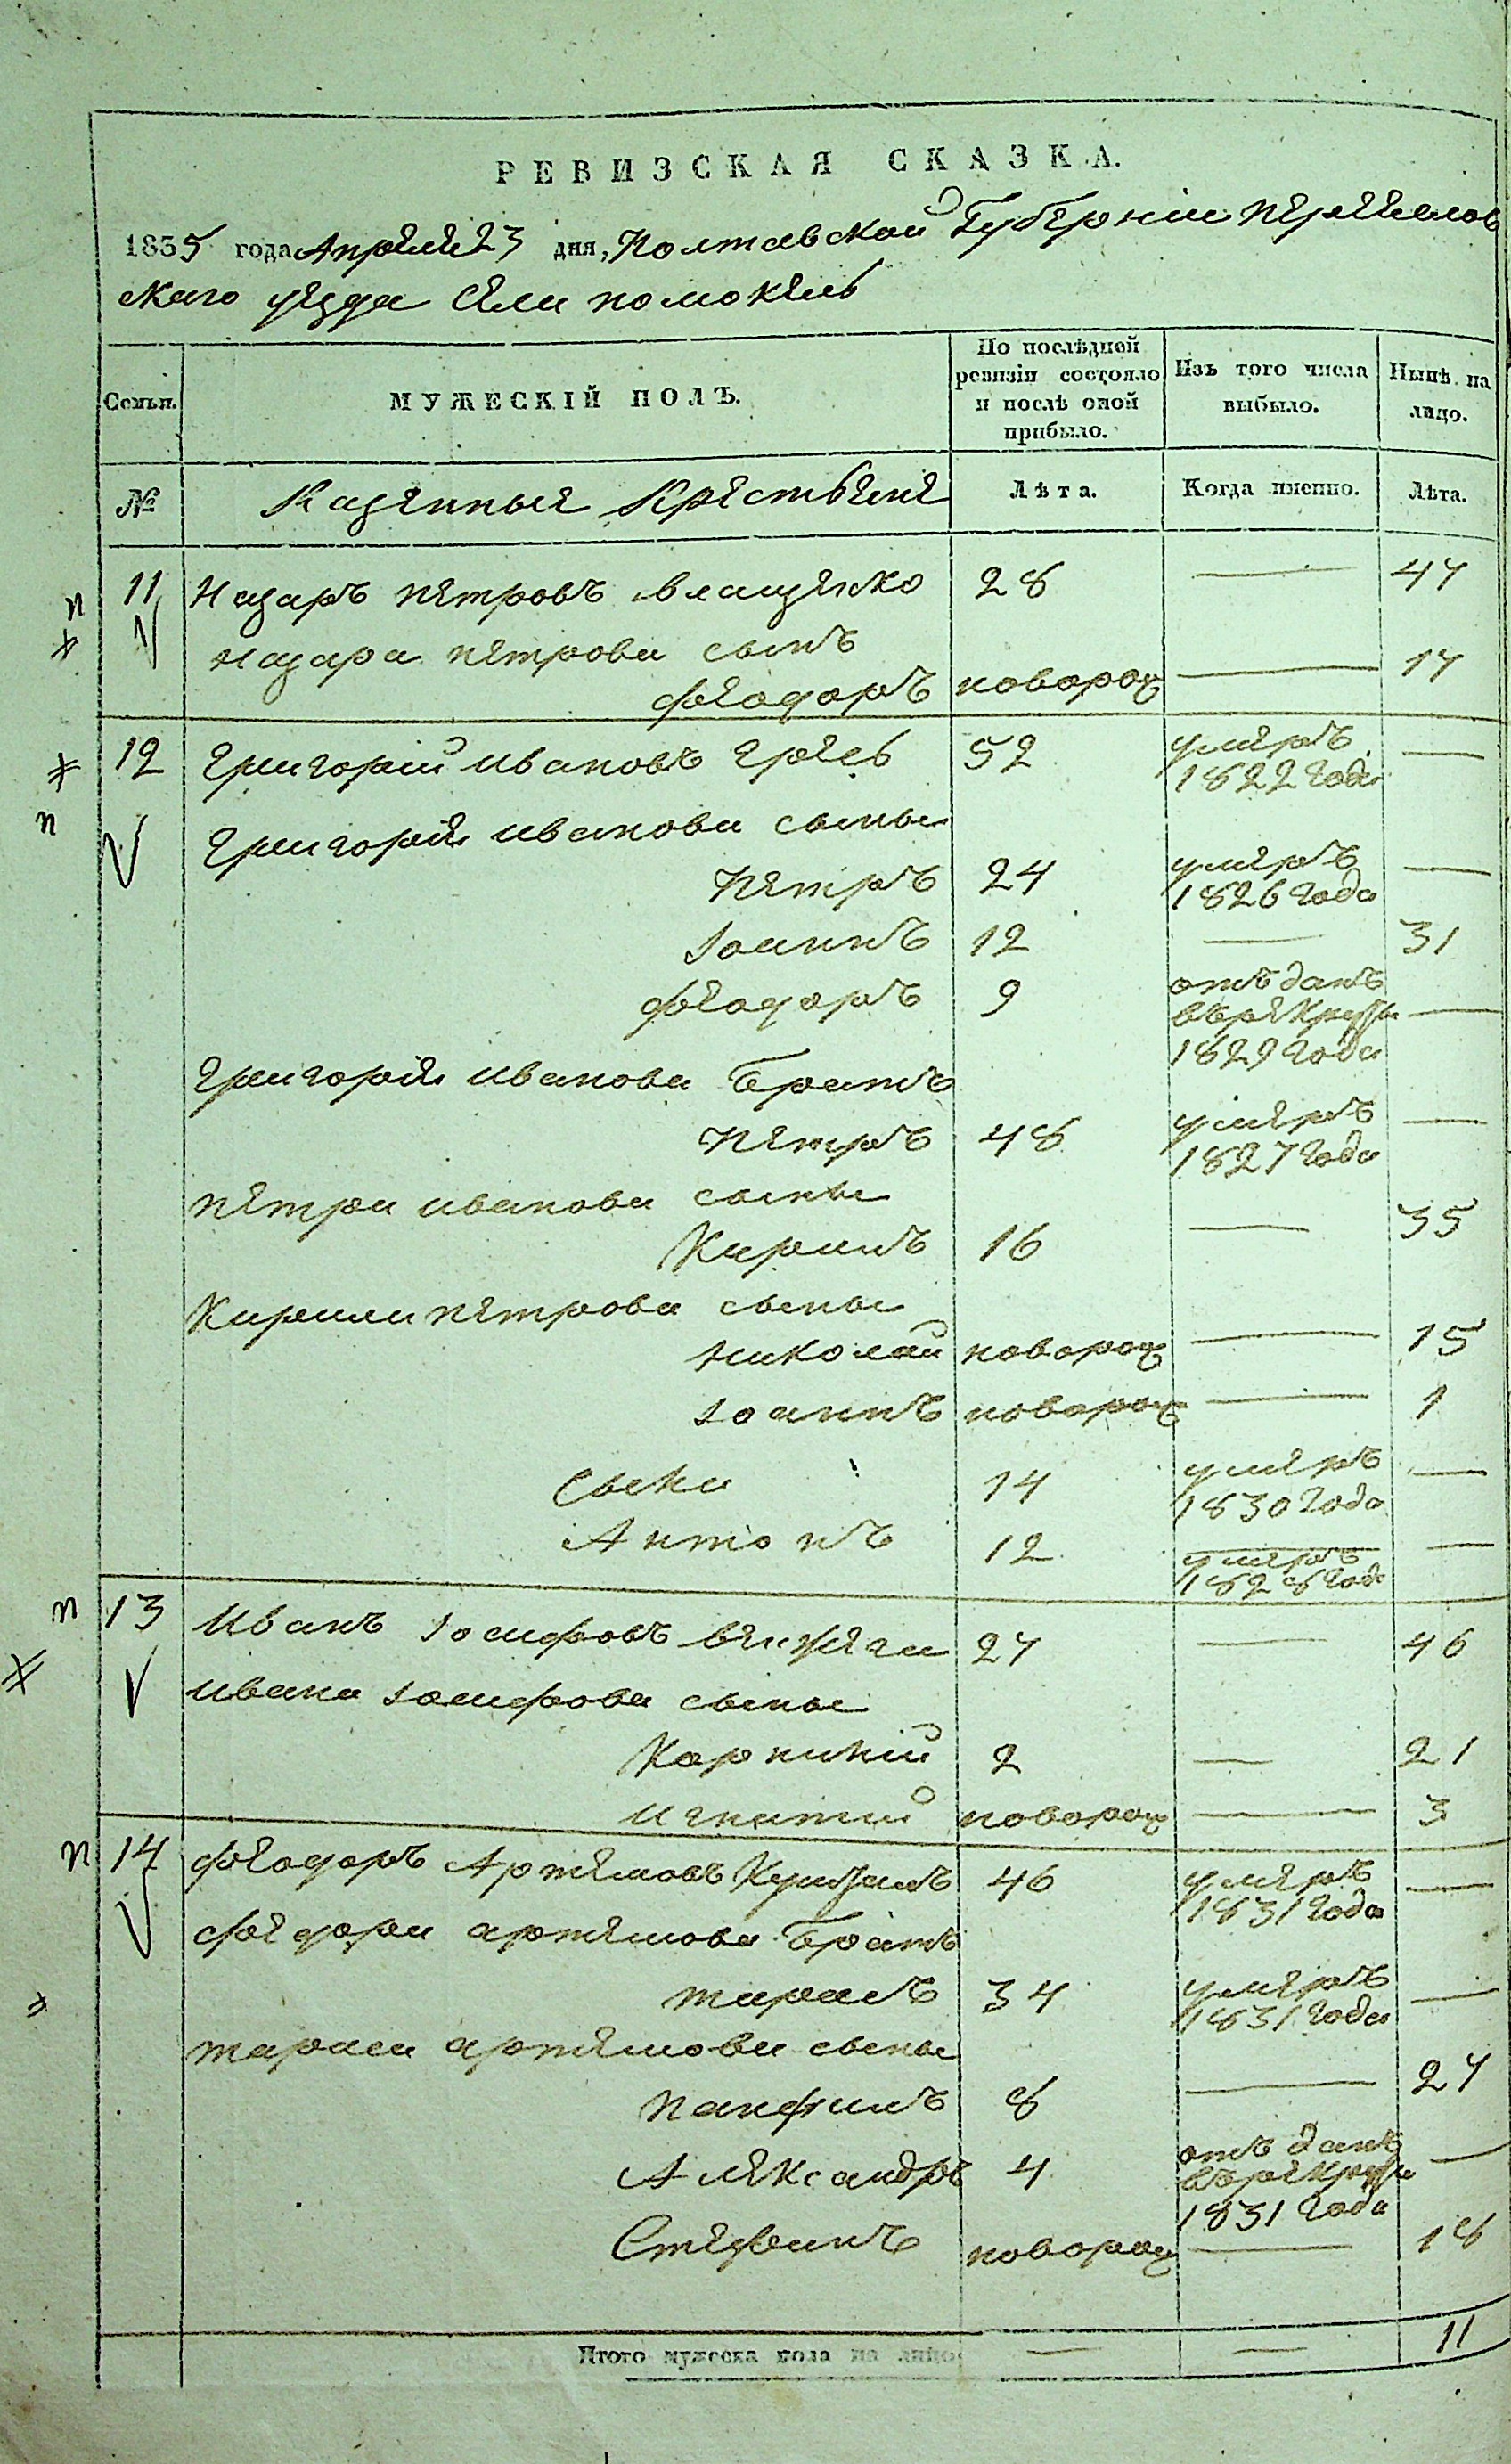 РЕВИЗСКАЯ СКАЗКА.
1835 года Апреля 23 дня, Полтавской Губерніи переяслов
скаго уезда Села помоклей
Семьи. МУЖЕСКІЙ ПОЛЪ. По послѣдней ревизіи состояло и послѣ оной прибыло. Изъ того числа выбыло. Нынѣ на лицо.
№ Казенныя Крестьяне Лѣта. Когда имянно. Лѣта.
п 11 Назаръ петровъ влащенко 28 — 47
Назара петрова сынъ
феодоръ новорож — 17
12 Григорій ивановъ 52 умеръ —
1822 года
п Григорія иванова сыны
Петръ 24 умеръ —
1826 года
Іоаннъ 12 — 31
феодоръ 9 отъданъ
въ рекруты —
1829 года
Григорія иванова братъ
Петръ 48 умеръ —
1827 года
петра иванова сыны
Кирилъ 16 — 35
Кирила петрова сыны
николай новорож — 15
Іоаннъ новорож — 1
14 умеръ —
1830 года
Антонъ 12 умеръ —
1828 года
п 13 Иванъ Іосифовъ 27 — 46
ивана Іосифова сыны
Корнилій 2 — 21
игнатій новорож — 3
п 14 феодоръ Артемовъ 46 умеръ —
1831 года
феодора артемова братъ
тарасъ 34 умеръ —
1831 года
тараса артемова сыны
панфилъ 8 — 27
Александръ 4 отъ данъ
въ рекруты —
1831 года
Стефанъ новорож — 18
Итого мужеска пола на лицо — — 11